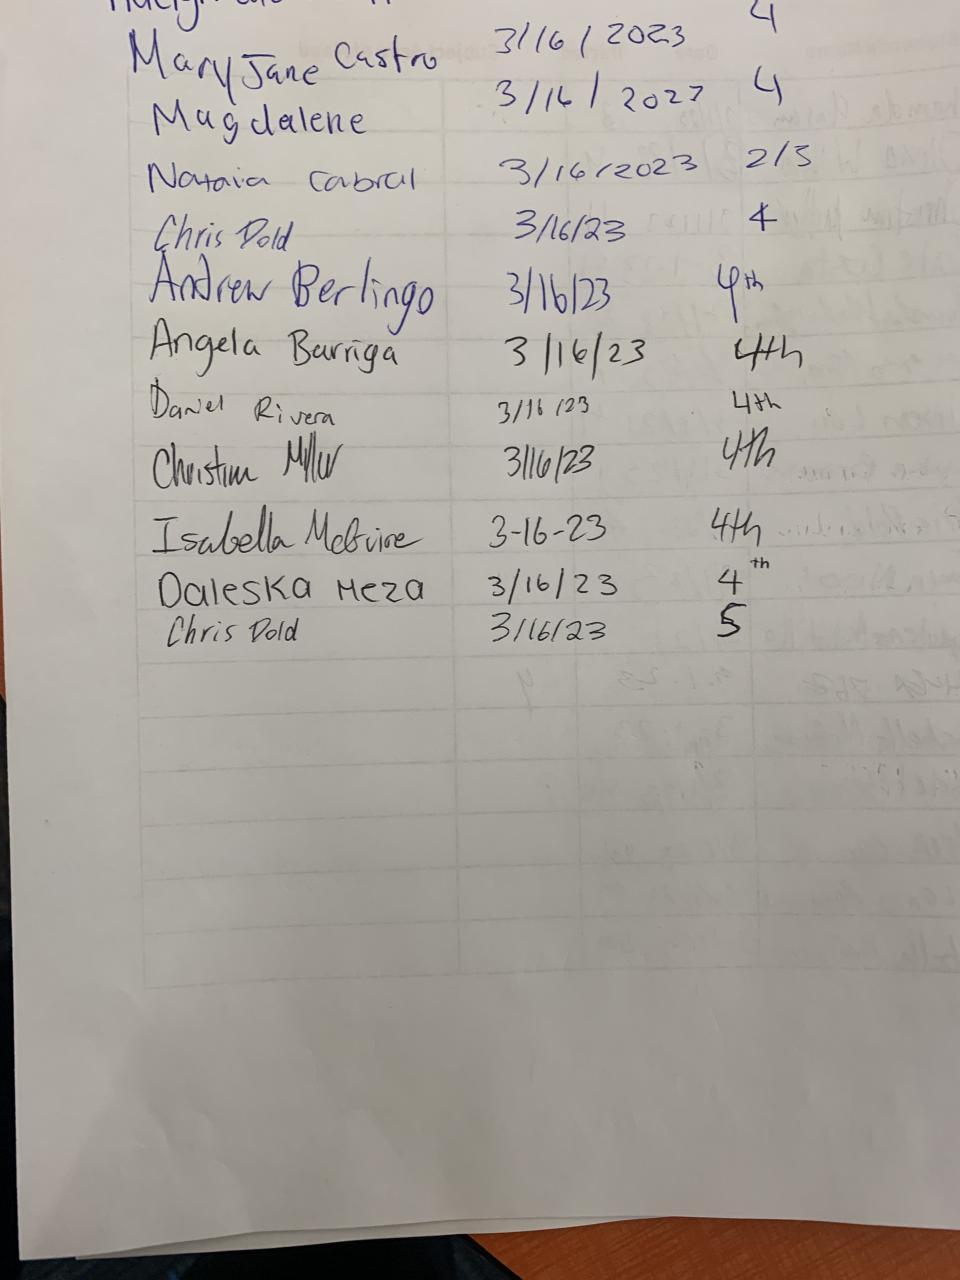 Mary Jane Castro 3/16/2023 4
Magdalene 3/16/2023 4
Nataia Cabral 3/16/2023 2/3
Chris Dold 3/16/23 4
Andrew Berlingo 3/16/23 4th
Angela Barriga 3/16/23 4th
Daniel Rivera 3/16/23 4th
3/16/23 4th
Isabella McGuire 3-16-23 4th
Daleska Meza 3/16/23 4th
Chris Dold 3/16/23 5